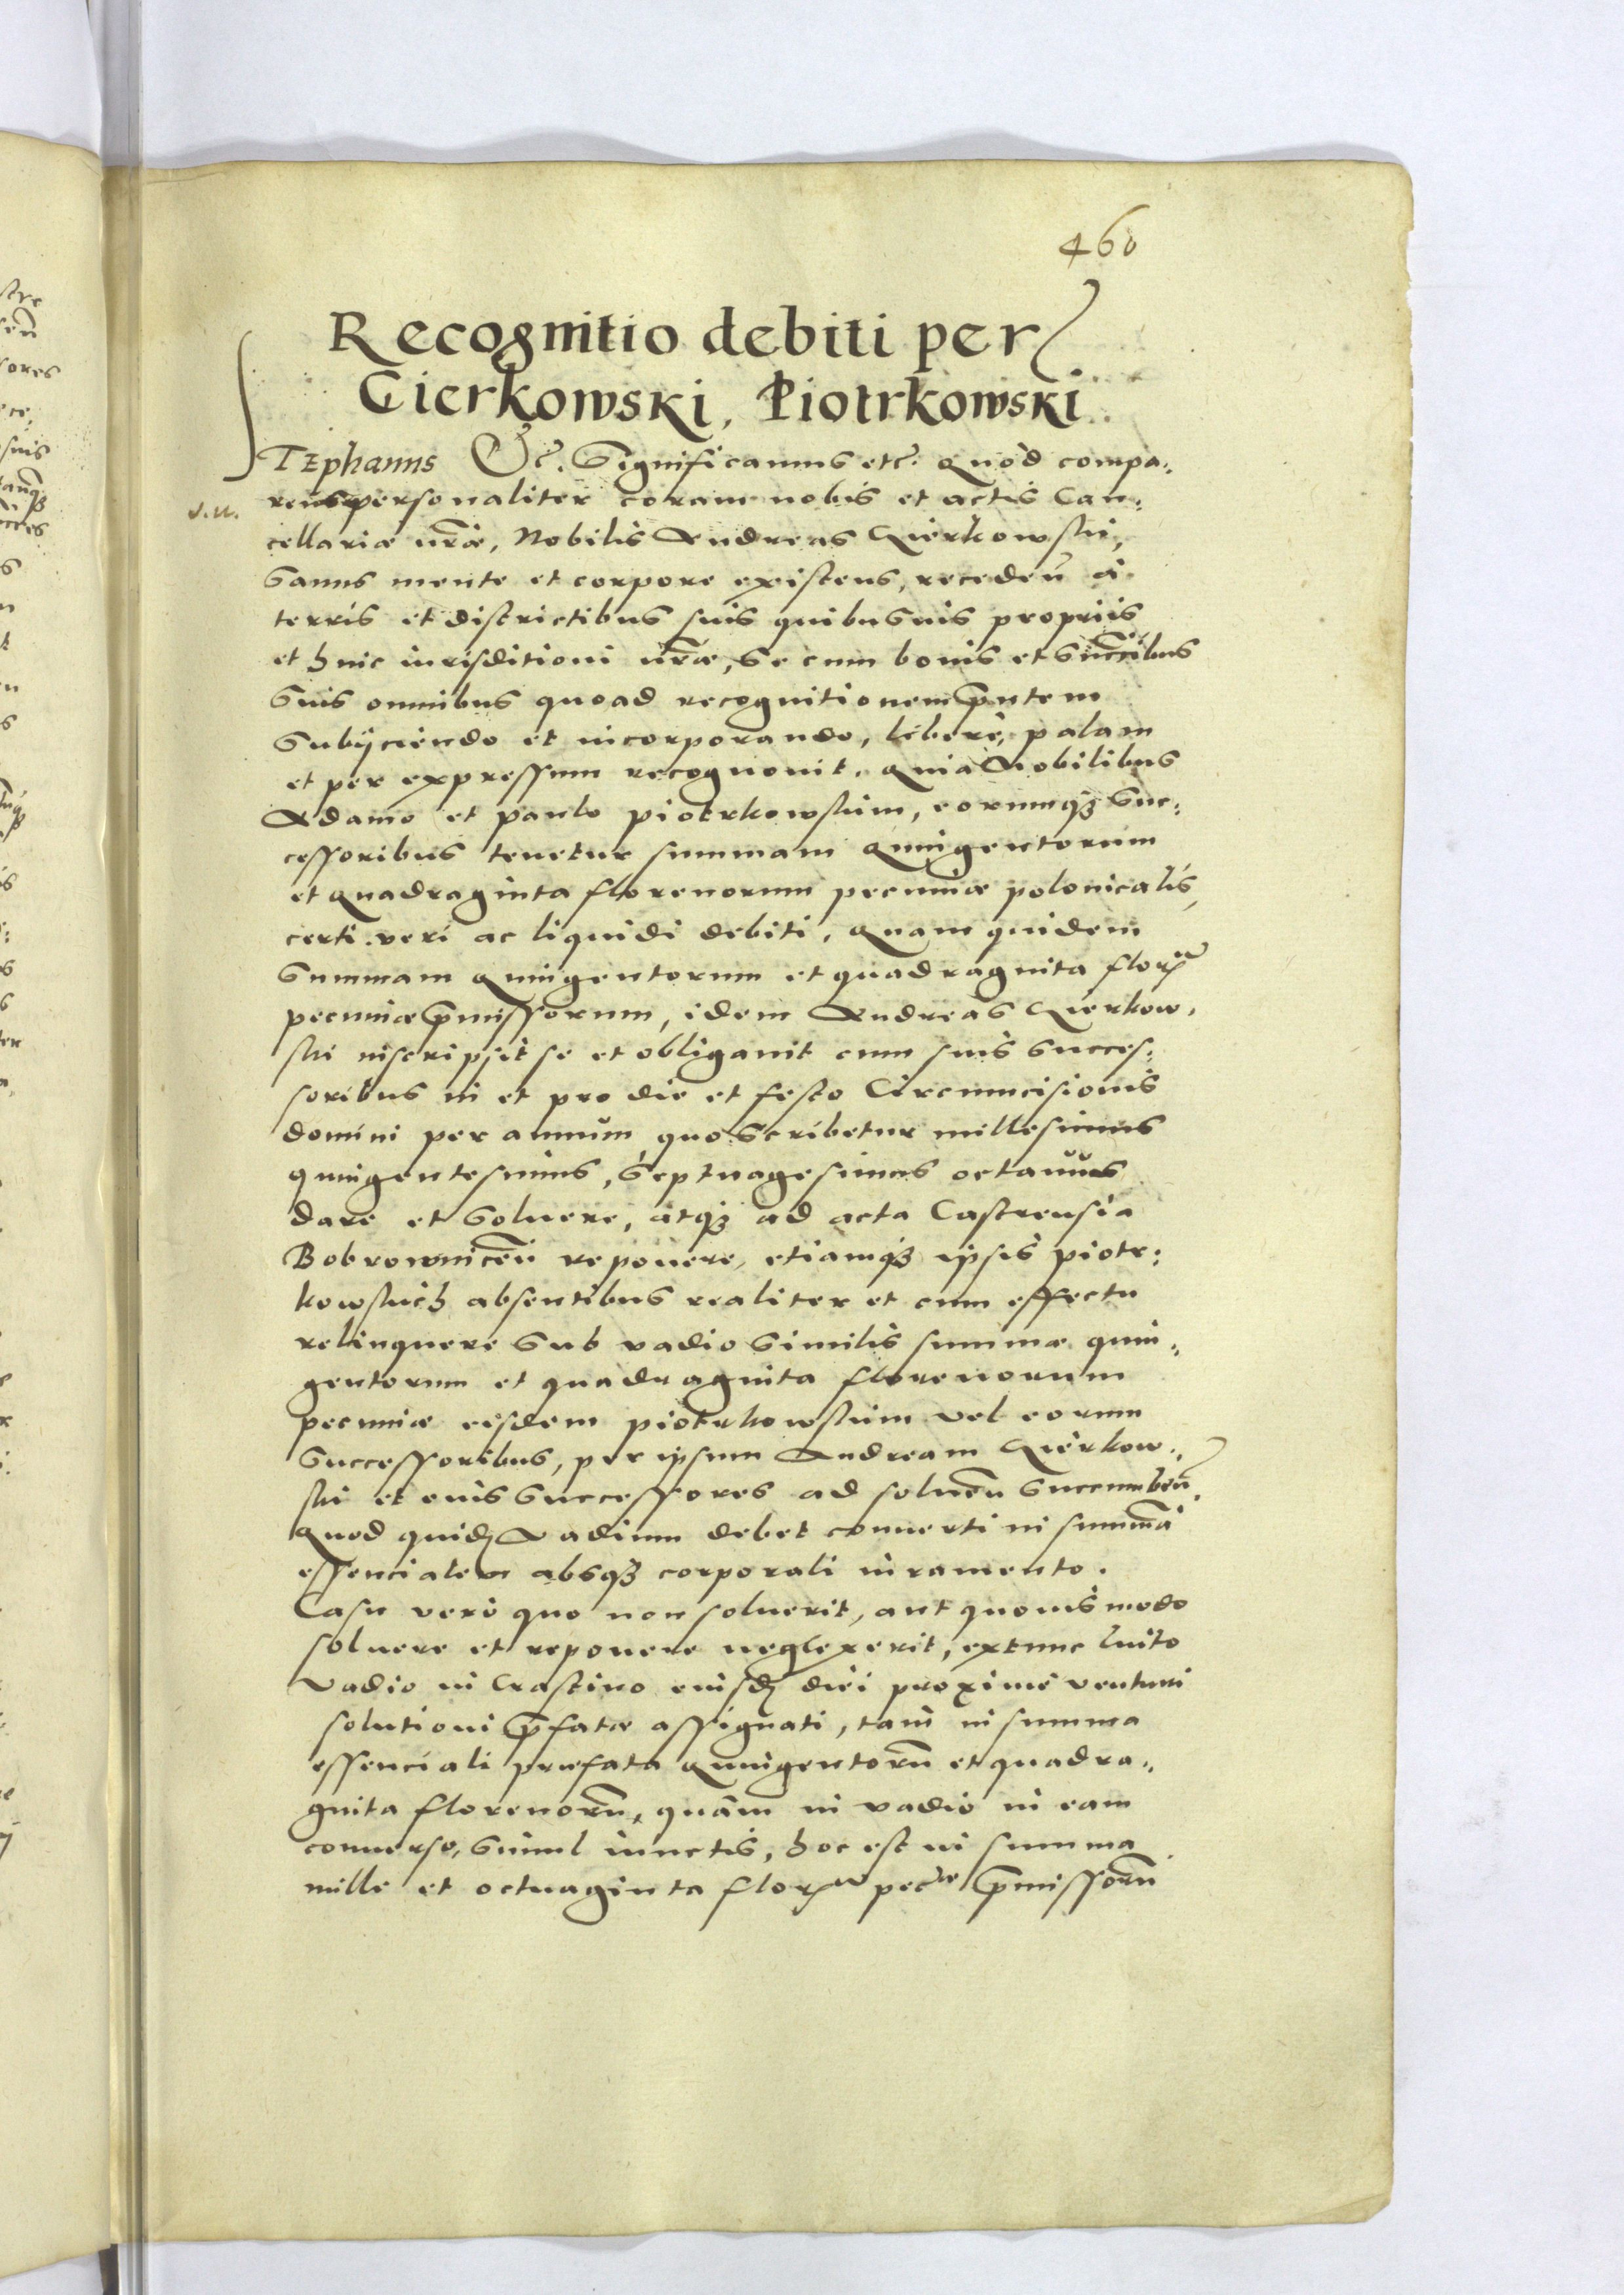 460
Recognitio debiti per
Gierkowski, Piotrkowski
STEphanus Etc̃. Significamus etc̃. Quòd compa⸗
rens personaliter coram nobis et actis Can⸗
cellariæ nr̃æ, Nobilis Andreas Gierkowski,
Sanus mente et corpore existens, receden̄ à
terris et districtibus suis quibusuis propriis
et huic iurisditioni nr̃æ, Se cum bonis et Succ̃ribus
Suis omnibus quoad recognitionem pn̄tem
Subijciendo et incorporando, liberè, palam
et per expressum recognouit. Quia Nobilibus
Adamo et Paulo Piotrkowskim, eorumq3 Suc⸗
cessoribus tenetur summam Quingentorum
et Quadraginta florenorum pecuniæ polonicalis,
certi veri ac liquidi debiti, Quam quidem
Summam Quingentorum et quadraginta florꝫ
pecuniæ p̄missorum, idem Andreas Gierkow⸗
ski inscripsit se et obligauit cum suis Succes⸗
soribus in et pro die et festo Circumcisionis
domini per annum, quo Scribetur millesimus
quingentesimus, Septuagesimus octauus
dare et Soluere, atq3 ad acta Castrensia
Bobrownicen̄ reponere, etiamq3 ipsis Piotr⸗
kowskich absentibus realiter et cum effectu
relinquere Sub vadio Similis summæ quin⸗
gentorum et quadraginta florenorum
pecuniæ eisdem Piotrkowskim vel eorum
Successoribus, per ipsum Andream Gierkow⸗
ski et eius Successores ad soluen̄ Succumben̄.
Quod quidē Vadium debet conuerti in summā
essencialem absq3 corporali iuramento.
Casu verò quo non soluerit, aut quouis modo
soluere et reponere neglexerit, extunc luito
Vadio in Crastino eiusdē diei proximè venturi
solutioni p̄fatæ assignati, tam in summa
essenciali præfata Quingentorū et quadra⸗
ginta florenorū, quàm in vadio in eam
conuerso, Simul iunctis, hoc est in summa
mille et octuaginta florꝫ pecuæ p̄missorū